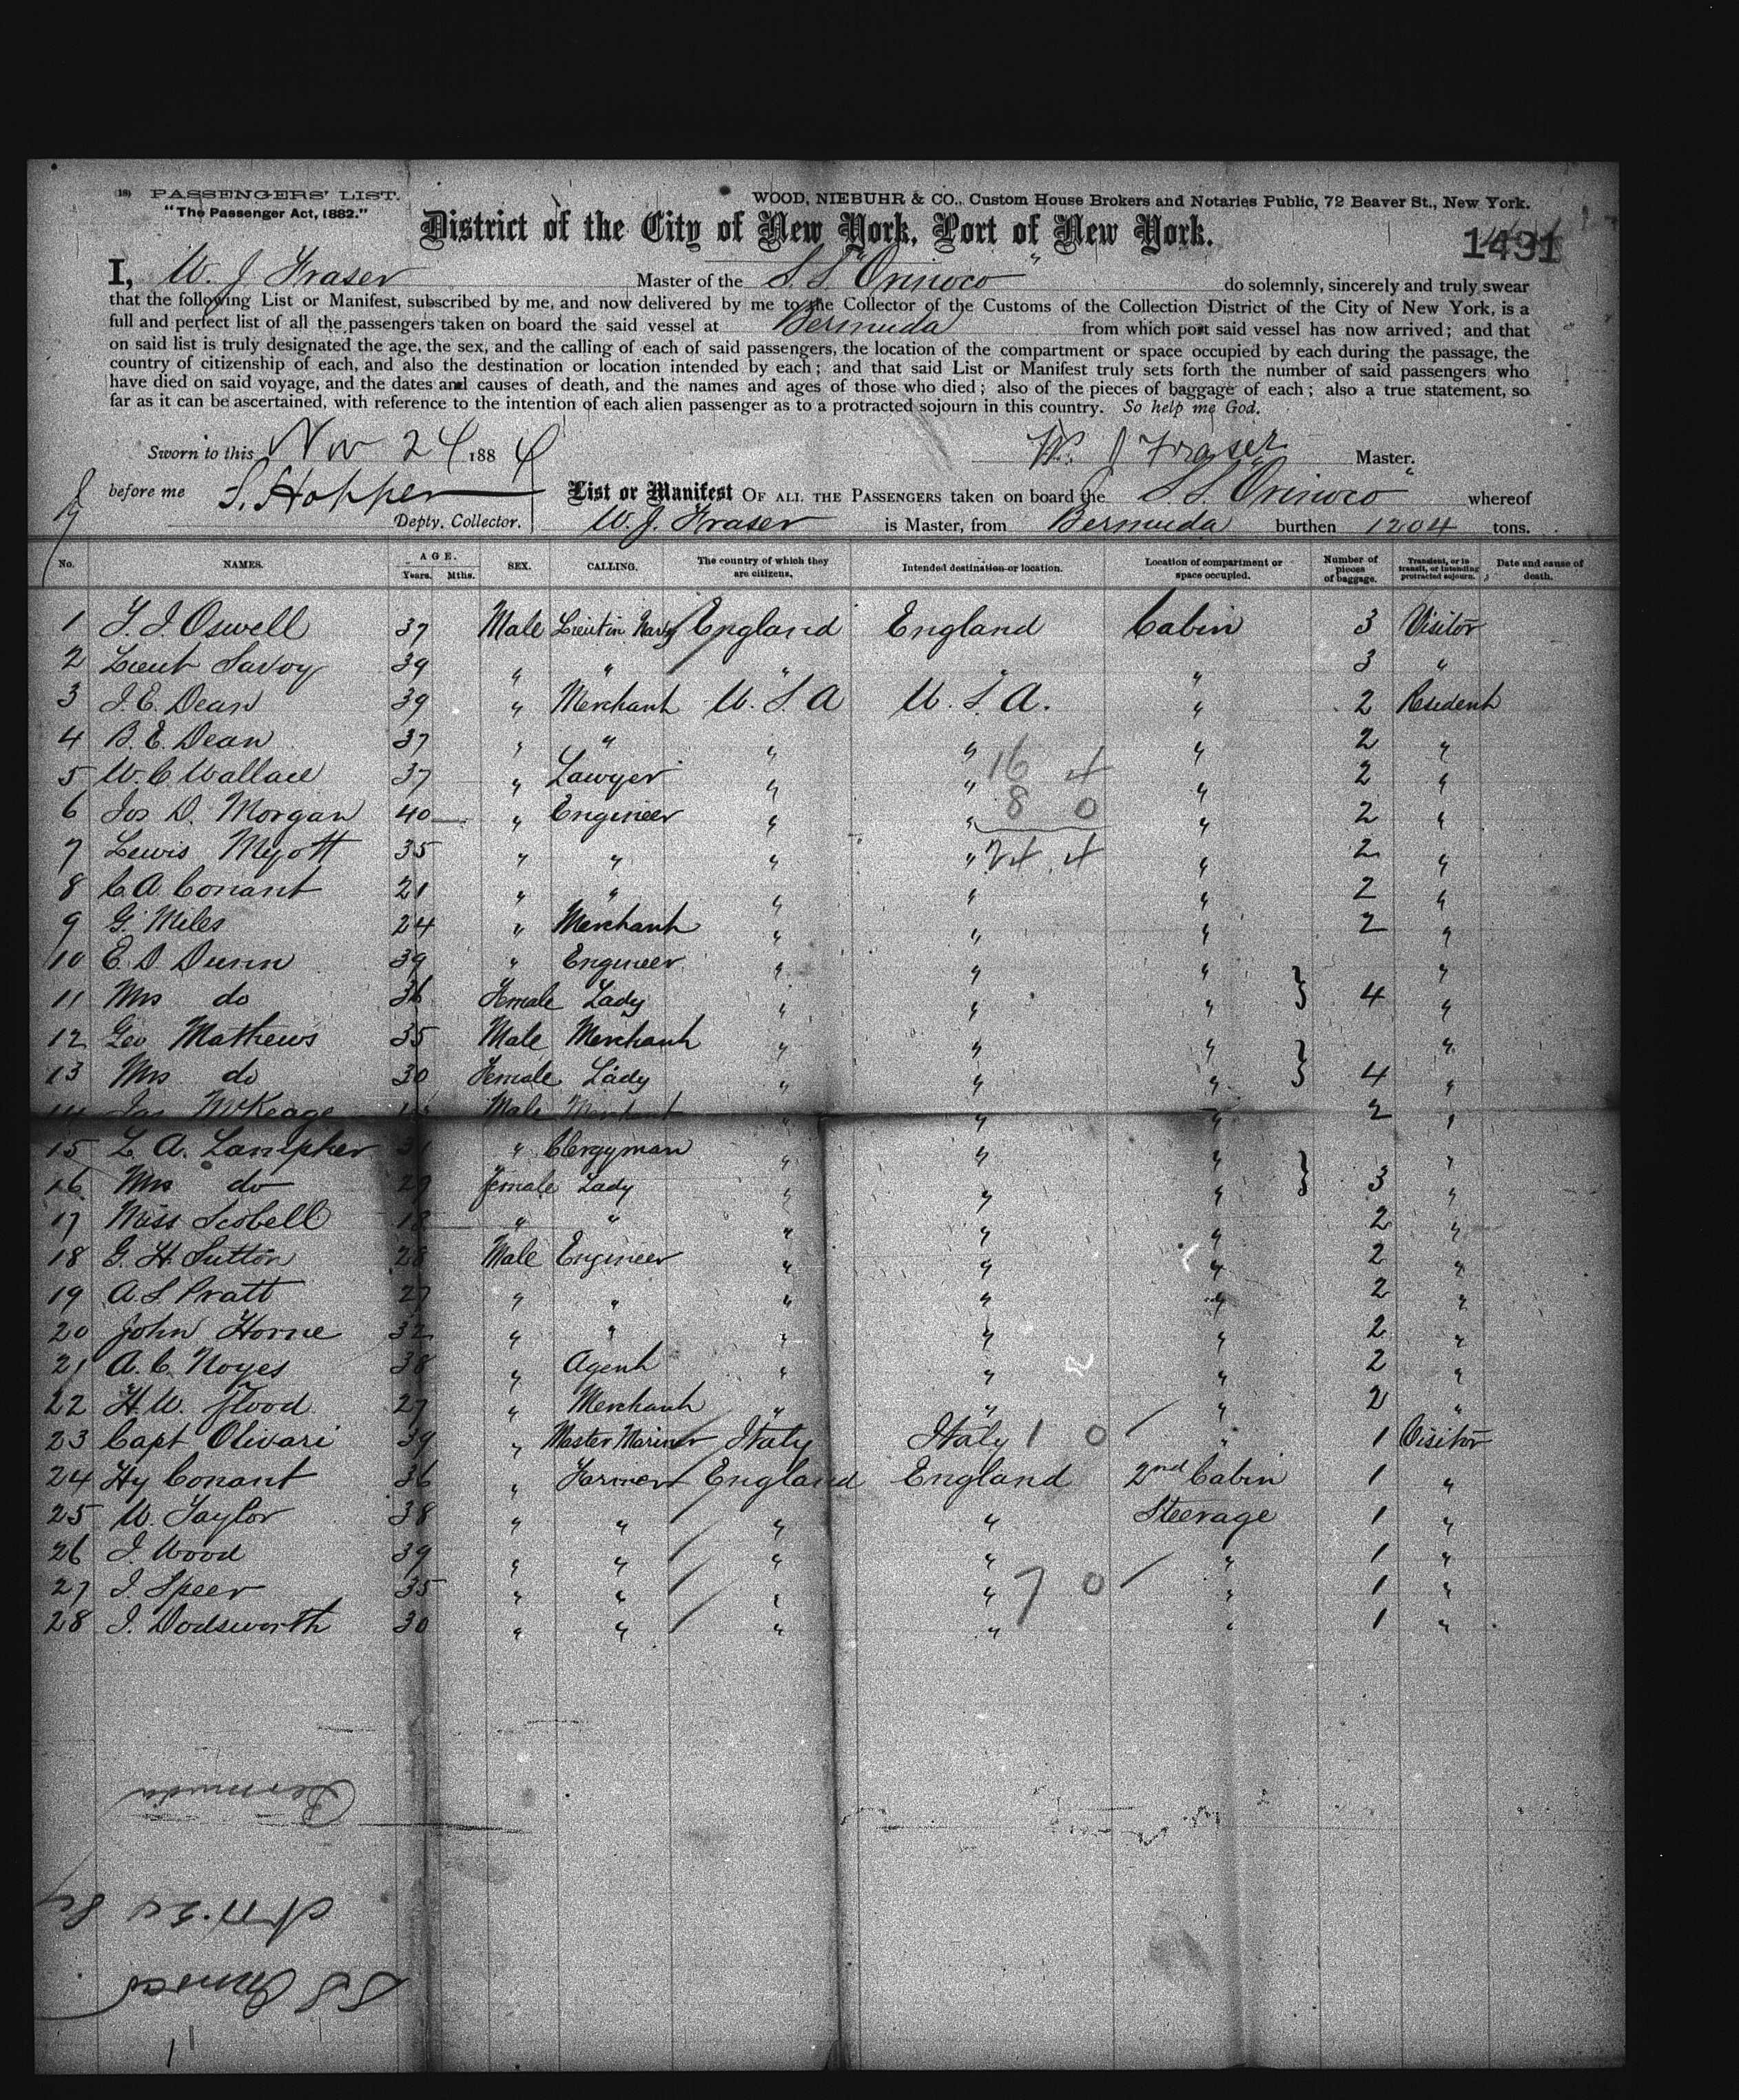 PASSENGERS' LIST.
"The Passenger Act, 1882."
WOOD, NIEBUHR & CO., Custom House Brokers and Notaries Public, 72 Beaver St., New York.
District of the City of New York, Port of New York.
1491
I, W. J Fraser Master of the S. S. "Orinoco" do solemnly, sincerely and truly swear
that the following List or Manifest, subscribed by me, and now delivered by me to the Collector of the Customs of the Collection District of the City of New York, is a
full and perfect list of all the passengers taken on board the said vessel at Bermuda from which port said vessel has now arrived; and that
on said list is truly designated the age, the sex, and the calling of each of said passengers, the location of the compartment or space occupied by each during the passage, the
country of citizenship of each, and also the destination or location intended by each; and that said List or Manifest truly sets forth the number of said passengers who
have died on said voyage, and the dates and causes of death, and the names and ages of those who died; also of the pieces of baggage of each; also a true statement, so
far as it can be ascertained, with reference to the intention of each alien passenger as to a protracted sojourn in this country. So help me God.
Sworn to this Nov 24 188 W. J Fraser Master.
before me S. Hopper
Depty. Collector.
List or Manifest OF ALL THE PASSENGERS taken on board the S. S. "Orinoco" whereof
W. J. Fraser is Master, from Bermuda burthen 1204 tons.
No. NAMES. AGE. Years. Mths. SEX. CALLING. The country of which they are citizens. Intended destination or location. Location of compartment or space occupied. Number of pieces of baggage. Transient, or in transit, or intending protracted sojourn. Date and cause of death.
1 F. J. Oswell 37 Male Lieut in Navy England England Cabin 3 Visitor
2 Lieut Savoy 39 " " " " " 3 "
3 J. E. Dean 39 " Merchant U. S. A U. S. A. " 2 Resident
4 B. E. Dean 37 " " " " " 2 "
5 W. C. Wallace 37 " Lawyer " " 16 4 " 2 "
6 Jos D. Morgan 40 " Engineer " " 8 0 " 2 "
7 Lewis Myott 35 " " " " 24 4 " 2 "
8 C. A Conant 21 " " " " " 2 "
9 G. Miles 24 " Merchant " " " 2 "
10 E. D. Dunn 39 " Engineer " " " "
11 Mrs do 36 Female Lady " " " } 4 "
12 Geo Mathews 35 Male Merchant " " " "
13 Mrs do 30 Female Lady " " " } 4 "
14 Jas McKeage Male Merchant " " " 2 "
15 L. A. Lanipher 31 " Clergyman " " " "
16 Mrs do 29 female Lady " " " } 3 "
17 Miss Scobell 18 " " " " " 2 "
18 G. H. Sutton 28 Male Engineer " " " 2 "
19 A. S. Pratt 27 " " " " " 2 "
20 John Horne 32 " " " " " 2 "
21 A. C. Noyes 38 " Agent " " " 2 "
22 H. W. Flood 27 " Merchant " " " 2 "
23 Capt Olivari 39 " Master Mariner Italy Italy 1 0 " 1 Visitor
24 Hy Conant 36 " Farmer England England 2nd Cabin 1 "
25 W. Taylor 38 " " " " Steerage 1 "
26 J. Wood 39 " " " " " 1 "
27 J. Speer 35 " " " " 7 0 " 1 "
28 J. Dodsworth 30 " " " " " 1 "
Bermuda
S S Orinoco